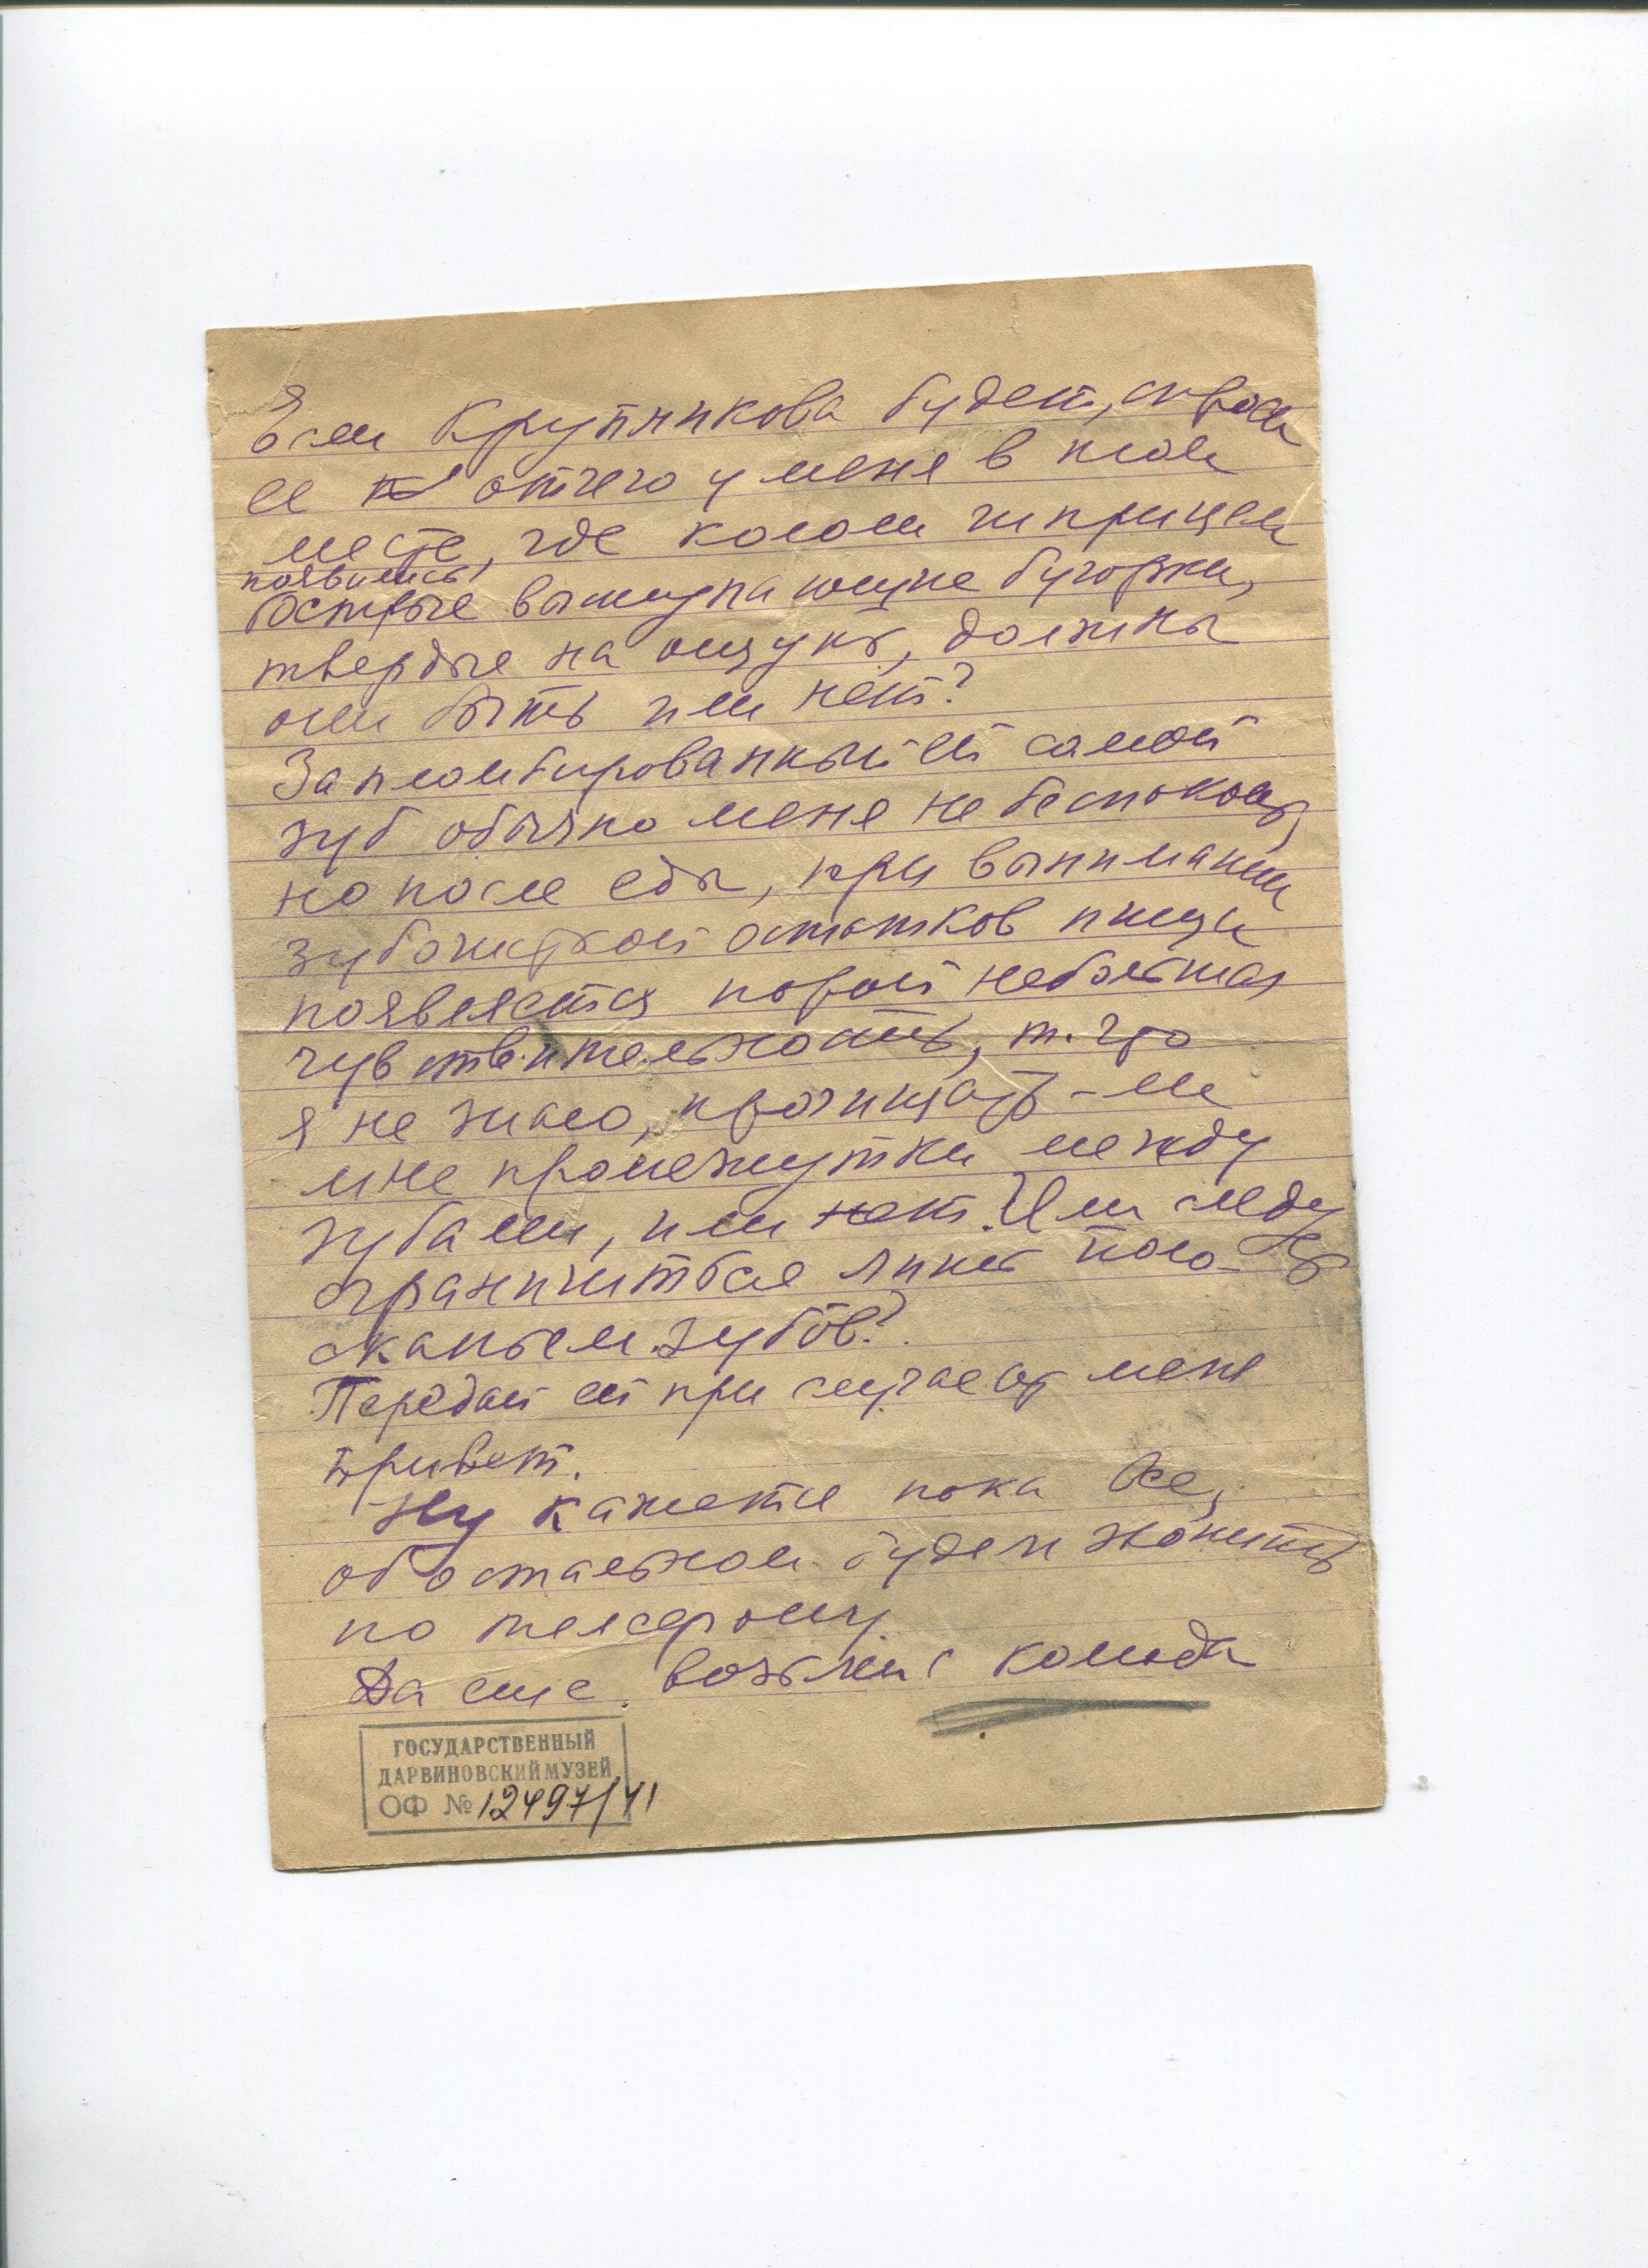 Если Крупчикова будет, спроси
ее отчего у меня в том
месте, где колом шприцем
появились
острые выступающие бугорки,
твердые на ощупь, должны
они быть или нет?
Запломбированный ей самой
зуб обычно меня не беспокоит,
но после еды, при вынимании
зубочисткой остатков пищи
появляется порой небольшая
чувствительность, т. что
я не знаю, прочищать-ли
мне промежутки между
зубами, или нет? Или следу
ет
ограничиться лишь поло-
сканьем зубов?
Передай ей при случае от меня
привет.
Ну кажется пока все,
об остальном будем звонить
по телефону.
Да еще возьми с комода
ГОСУДАРСТВЕННЫЙ
ДАРВИНОВСКИЙ МУЗЕЙ
ОФ № 12497/41